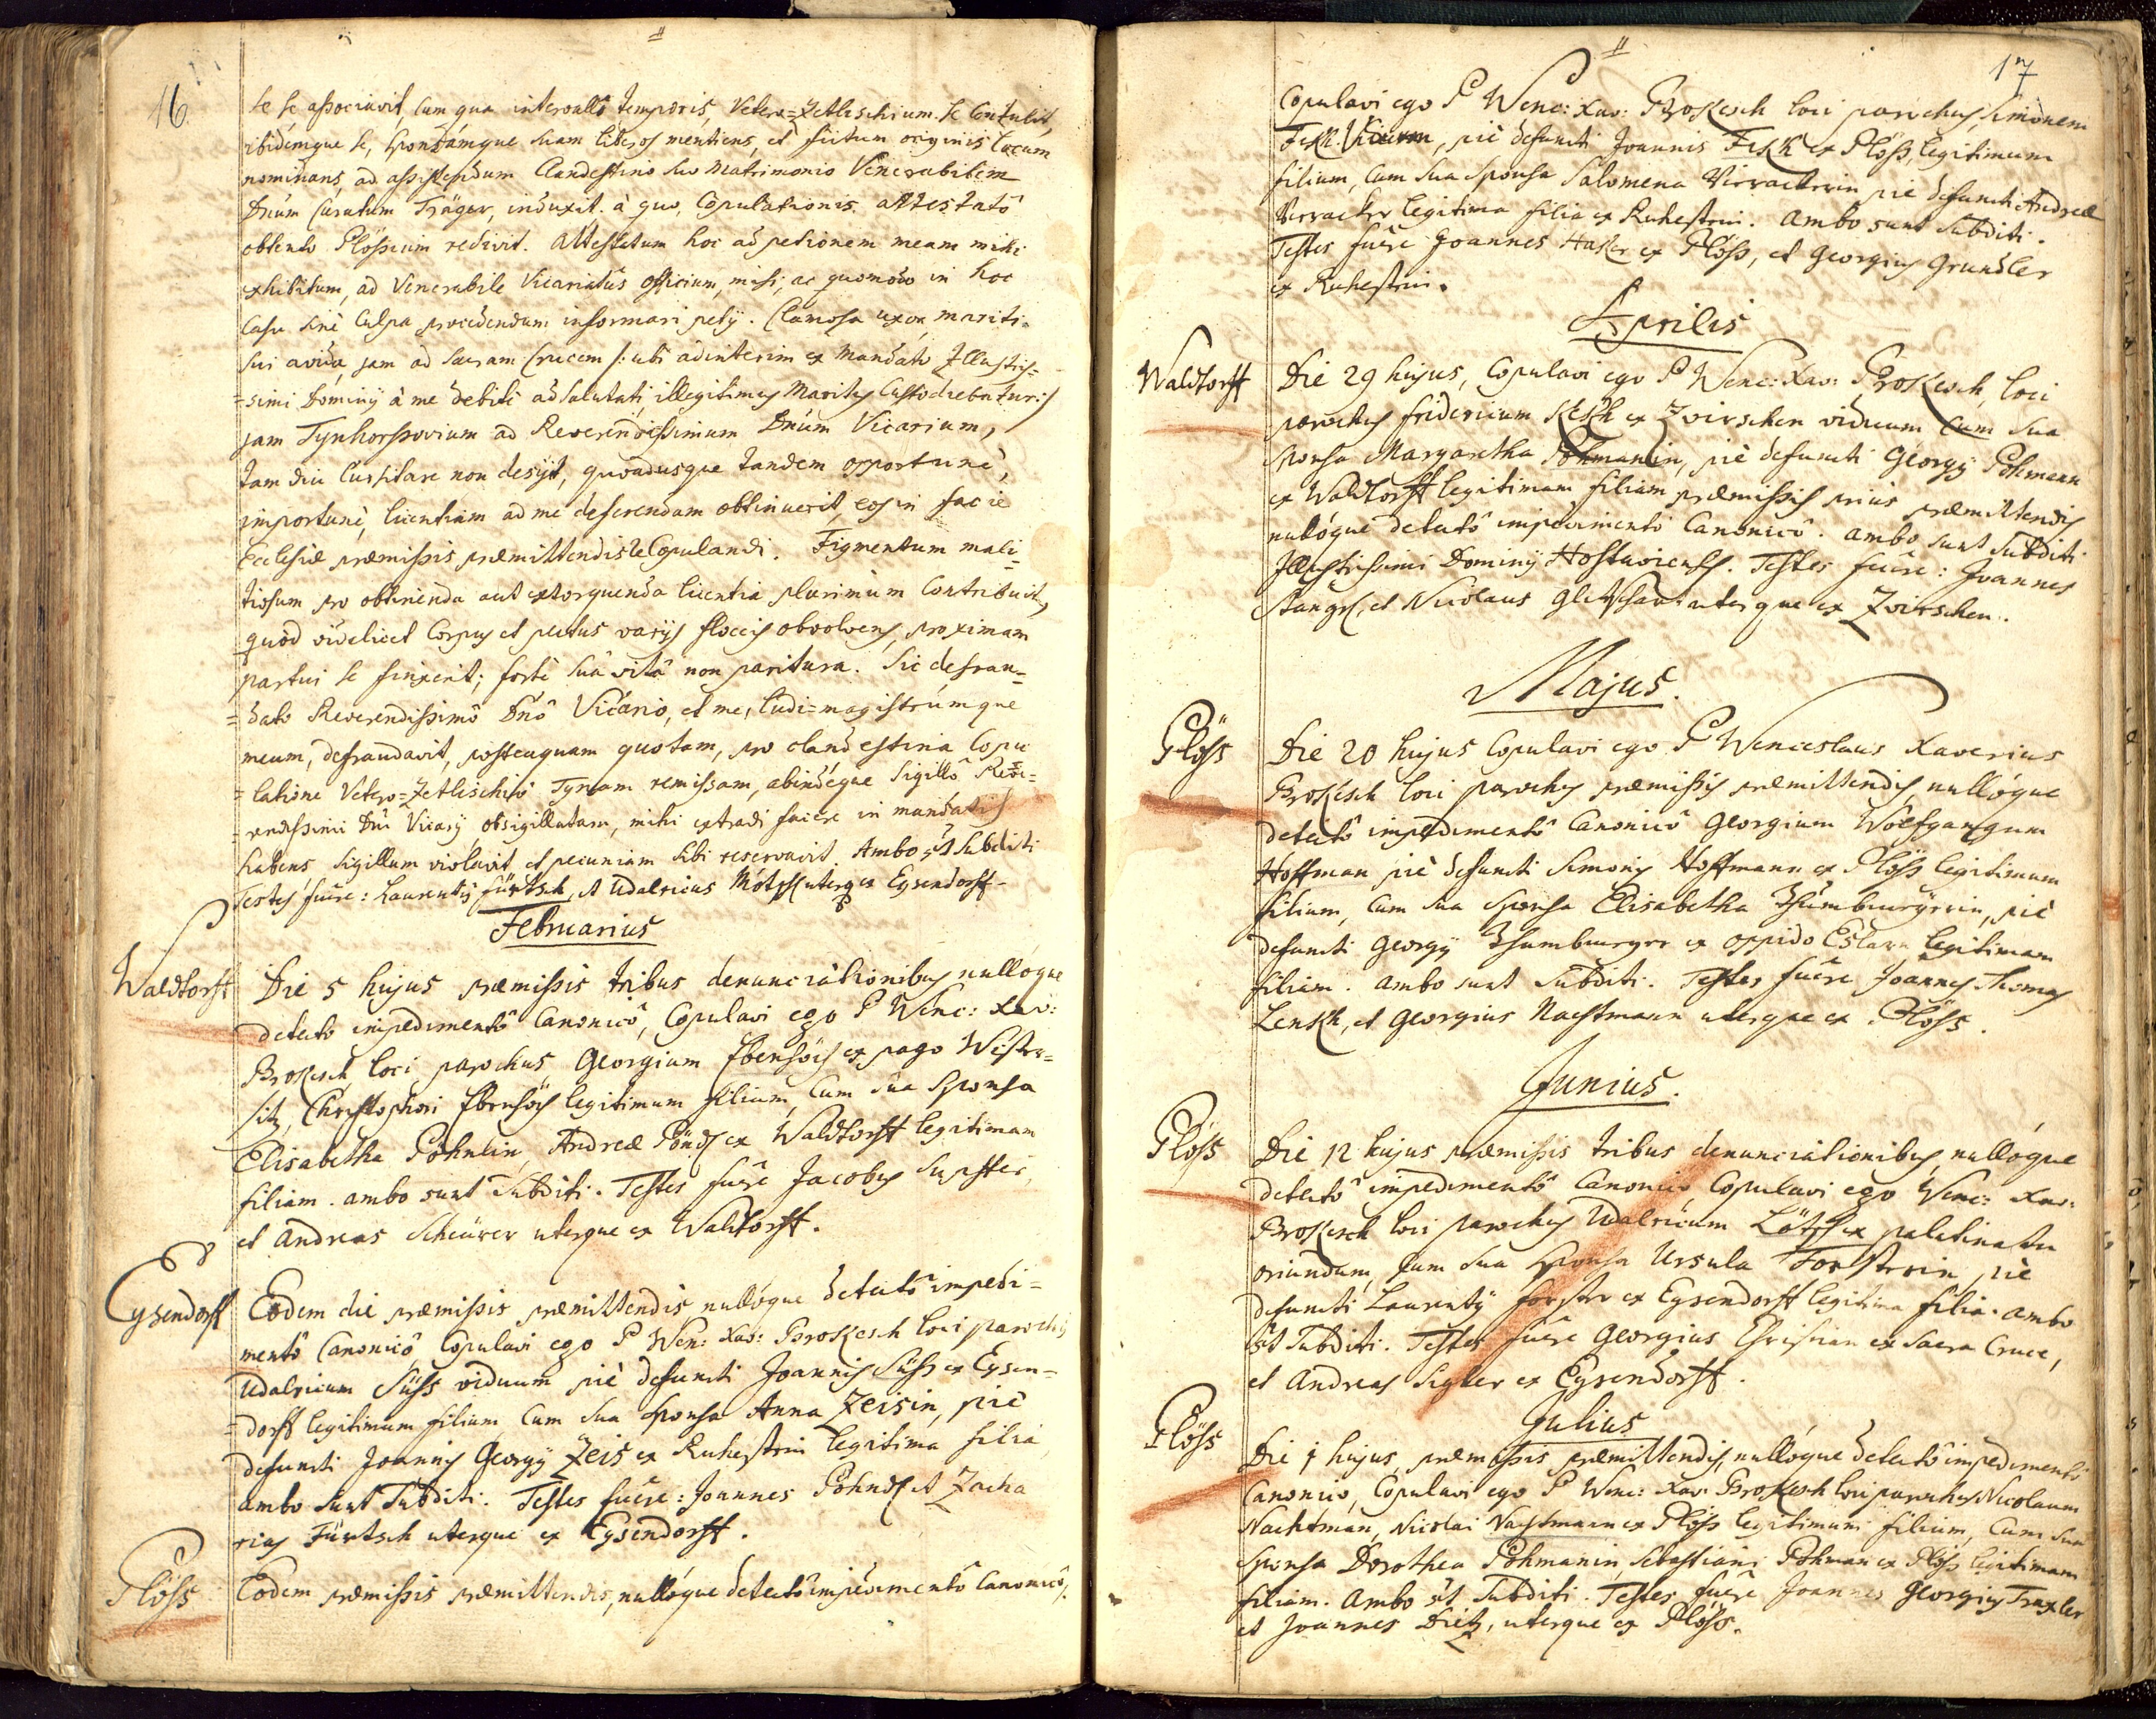 16
se se associavit, cum qua intervallo temporis, Vetero=Zetlischium se contulit,
ibidemque se, sponsamque suam liberos mentiens, et fictum originis locum
nominans, ad assistendum Clandestino suo Matrimonio Venerabilem
Dnúm Curatum Träger, induxit. à quo, Copulationis attestatô
obtento Plössium redivit. Attestatum hoc ad petionem meam mihi
exhibitum, ad Venerabile Vicariatûs officium, misi, ac quomodo in hoc
casu sinè culpa procedendum informari petij. Clamosa uxor, mariti=
sui avida, jam ad Sacram Crucem /: ubi adinterim ex mandato Illustris=
=simi Dominij à me debitè adsalutati illegitimus Maritus custodiebatur :/
jam Tynhorssovium ad Reverendissimum Dnúm Vicarium,
tam diu cursitare non desijt, quoadusque tandem opportunè,
importunè, licentiam ad me deferendam obtinuerit, eos in facie
Ecclesiæ præmissis præmittendis Copulandi. Figmentum mali=
tiosum pro obtinenda aut extorquenda licentia plurimùm Contribuit,
quòd videlicet Corpus et pectus varijs floccis obvolvens, proximam
partui se finxerit; fortè suâ vitâ non paritura. Sic defrau=
=dato Reverendissimô Dnô Vicario, et me, ludi=magistrúmque
meum, defraudavit, posteaquam quotam, pro clandestina Copu
=latione Vetero=Zetlischiô Tynam remissam, abindéque Sigillô Reve=
=rendissimi Dni Vicarij obsigillatam, mihi extradi facere in mandatis
habens, sigillum violavit, et pecuniam sibi reservavit. Ambo st Subditi
Testes fuêre: Laurentij Fürtsch, et Udalricus Mötzl uterq ex Eysendorff.
Februarius
Waldtorff
Die 5 hujus præmissis tribus denunciationibus nulloque
detecto impedimentô Canonicô, Copulavi ego P Wenc: Xav:
Prokesch loci parochus, Georgium Ebenhöch ex pago Wister=
sitz, Christophori Ebenhöch legitimum filium, cum sua Sponsa
Elisabetha Pöhnlin, Andreæ Pöndl ex Waldtorff legitimam
filiam. ambo sunt Subditi. Testes fuêre Jacobus Supster,
et Andreas Scheürer uterque ex Waldtorff.
Eysendorff
Eodem die præmissis præmittendis nullóque detectô impedi=
mentô Canonicô Copulavi ego P Wen: Xav: Prokesch loci parochus
Udalricum Süss viduum piè defuncti Joannis Süss ex Eysen=
=dorff legitimum filium, cum sua Sponsa Anna Zeisin, piè
defuncti Joannis Georgij Zeis ex Ruhestein legitima filia
ambo sunt Subditi. Testes fuêre: Joannes Pöhndl et Zacha
rias Fürtsch uterque ex Eysendorff.
Plöss
Eodem præmissis præmittendis, nullóque detectô impedimentô Canonicô,
17
Copulavi ego P Wenc: Xav: Prokesch loci parochus, Simonem
Fiskh, piè defuncti Joannis Fiskh ex Plöss, legitimum
filium, cum sua Sponsa Salomena Vierackerin piè defuncti Andreæ
Vieracker legitima filia ex Ruhestein. Ambo sunt Subditi.
Testes fuêre Joannes Haker ex Plöss, et Georgius Grundler
ex Ruhestein.
Aprilis
Waldtorff
Die 29 hujus, Copulavi ego P Wenc: Xav: Prokesch, loci
parochus Fridericum ex Zwirschen viduum cum sua
Sponsa Margaretha Pöhmanin, piè defuncti Georgij Pöhmann
ex Waldtorff legitimam filiam præmissis priùs præmittendis
nullóque detectô impedimentô Canonicô. Ambo sunt Subditi
Illustrissimi Dominij Hostaviensis. Testes fuêre: Joannes
Stangl, et Nicolaus uterque ex Zwirschen.
Majus.
Plöss
Die 20 hujus Copulavi ego P Wenceslaus Xaverius
Prokesch loci parochus præmissis præmittendis, nullóque
detectô impedimentô Canonicô Georgium Wolfgangum
Hoffman piè defuncti Simonis Hoffmann ex Plöss legitimum
filium, cum sua Sponsa Elisabetha Thümburgerin, piè
defuncti Georgij Thumburger ex oppido Eslarn legitimam
filiam. Ambo sunt Subditi. Testes fuêre Joannes Thomas
Lenkh, et Georgius Nachtmann uterque ex Plöss.
Junius.
Plöss
Die 12 hujus præmissis tribus denunciationibus, nullóque
detectô impedimentô Canonico, Copulavi ego Wenc: Xav:
Prokesch loci parochus Udalricum Lötzl ex palatinatu
oriundum, cum sua Sponsa Ursula Forsterin, piè
defuncti Laurentij Forster ex Eysendorff legitima filia. ambo
st Subditi. Testes fuêre Georgius Christian ex Sacra Cruce,
et Andreas Sigler ex Eysendorff.
Julius
Plöss
Die hujus, præmissis præmittendis, nullóque detectô impedimentô
Canonico, Copulavi ego P Wenc: Xav: Prokesch loci parochus Nicolaum
Nachtman, Nicolai Nachtmann ex Plöss legitimum filium, cum sua
Sponsa Dorothea Pöhmanin, Sebastiani Pöhman ex Plöss legitimam
filiam. Ambo st Subditi. Testes fuêre Joannes Georgius Traxler
et Joannes Dietz, uterque ex Plöss.